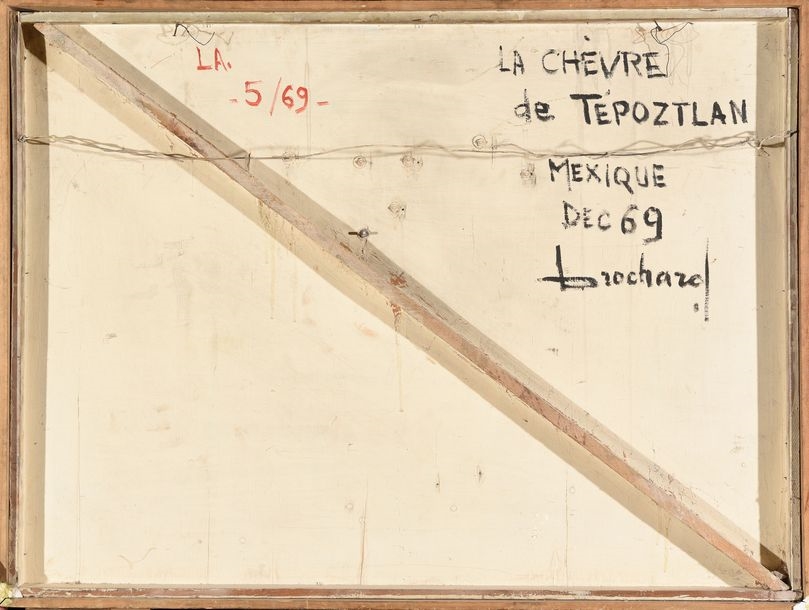 LA.
- 5/69 -
LA CHÈVRE
de TÉPOZTLAN
MEXIQUE
DEC 69
brochard